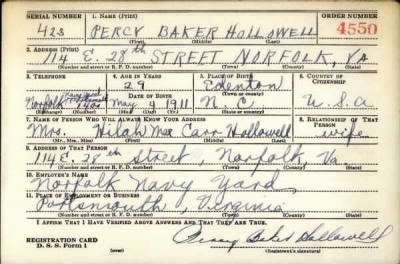 SERIAL NUMBER 1. NAME (Print) ORDER NUMBER
423 PERCY BAKER HOLLOWELL 4550
(First) (Middle) (Last)
2. ADDRESS (Print)
114 E. 28th STREET NORFOLK, VA
(Number and street or R. F. D. number) (Town) (County) (State)
3. TELEPHONE 4. AGE IN YEARS 5. PLACE OF BIRTH 6. COUNTRY OF CITIZENSHIP
Edenton
DATE OF BIRTH (Town or county)
Norfolk May 4 1911 N. C. U.S.A
(Exchange) (Number) (Mo.) (Day) (Yr.) (State or country)
7. NAME OF PERSON WHO WILL ALWAYS KNOW YOUR ADDRESS 8. RELATIONSHIP OF THAT PERSON
Mrs. Hilah Mae Carr Hollowell wife
(Mr., Mrs., Miss) (First) (Middle) (Last)
9. ADDRESS OF THAT PERSON
114 E. 28th Street, Norfolk, Va.
(Number and street or R. F. D. number) (Town) (County) (State)
10. EMPLOYER'S NAME
Norfolk Navy Yard
11. PLACE OF EMPLOYMENT OR BUSINESS
Portsmouth, Virginia
(Number and street or R. F. D. number) (Town) (County) (State)
I AFFIRM THAT I HAVE VERIFIED ABOVE ANSWERS AND THAT THEY ARE TRUE.
REGISTRATION CARD
D. S. S. Form 1 (over) Percy Baker Hollowell
(Registrant's signature)